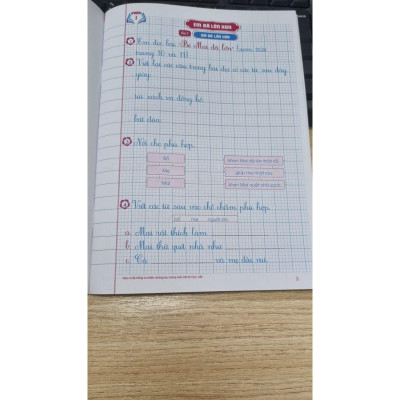 1
EM ĐÃ LỚN HƠN
Bài 1
BÉ MAI ĐÃ LỚN
1 Em đọc bài "Bé Mai đã lớn" (
trang 10 và 11)
2 Viết lại các câu trong bài đọc có các từ sau đây:
giày:
túi xách và đồng hồ:
buổi đầu:
3 Nối cho phù hợp.
Bố
khen Mai đã lớn
Mẹ
giúp mẹ
Mai
khen Mai quét nhà sạch.
4 Viết các từ sau vào chỗ chấm phù hợp.
bố mẹ người lớn
a. Mai rất thích làm
b. Mai thử quét nhà như
c. Cả và mẹ đều vui.
5